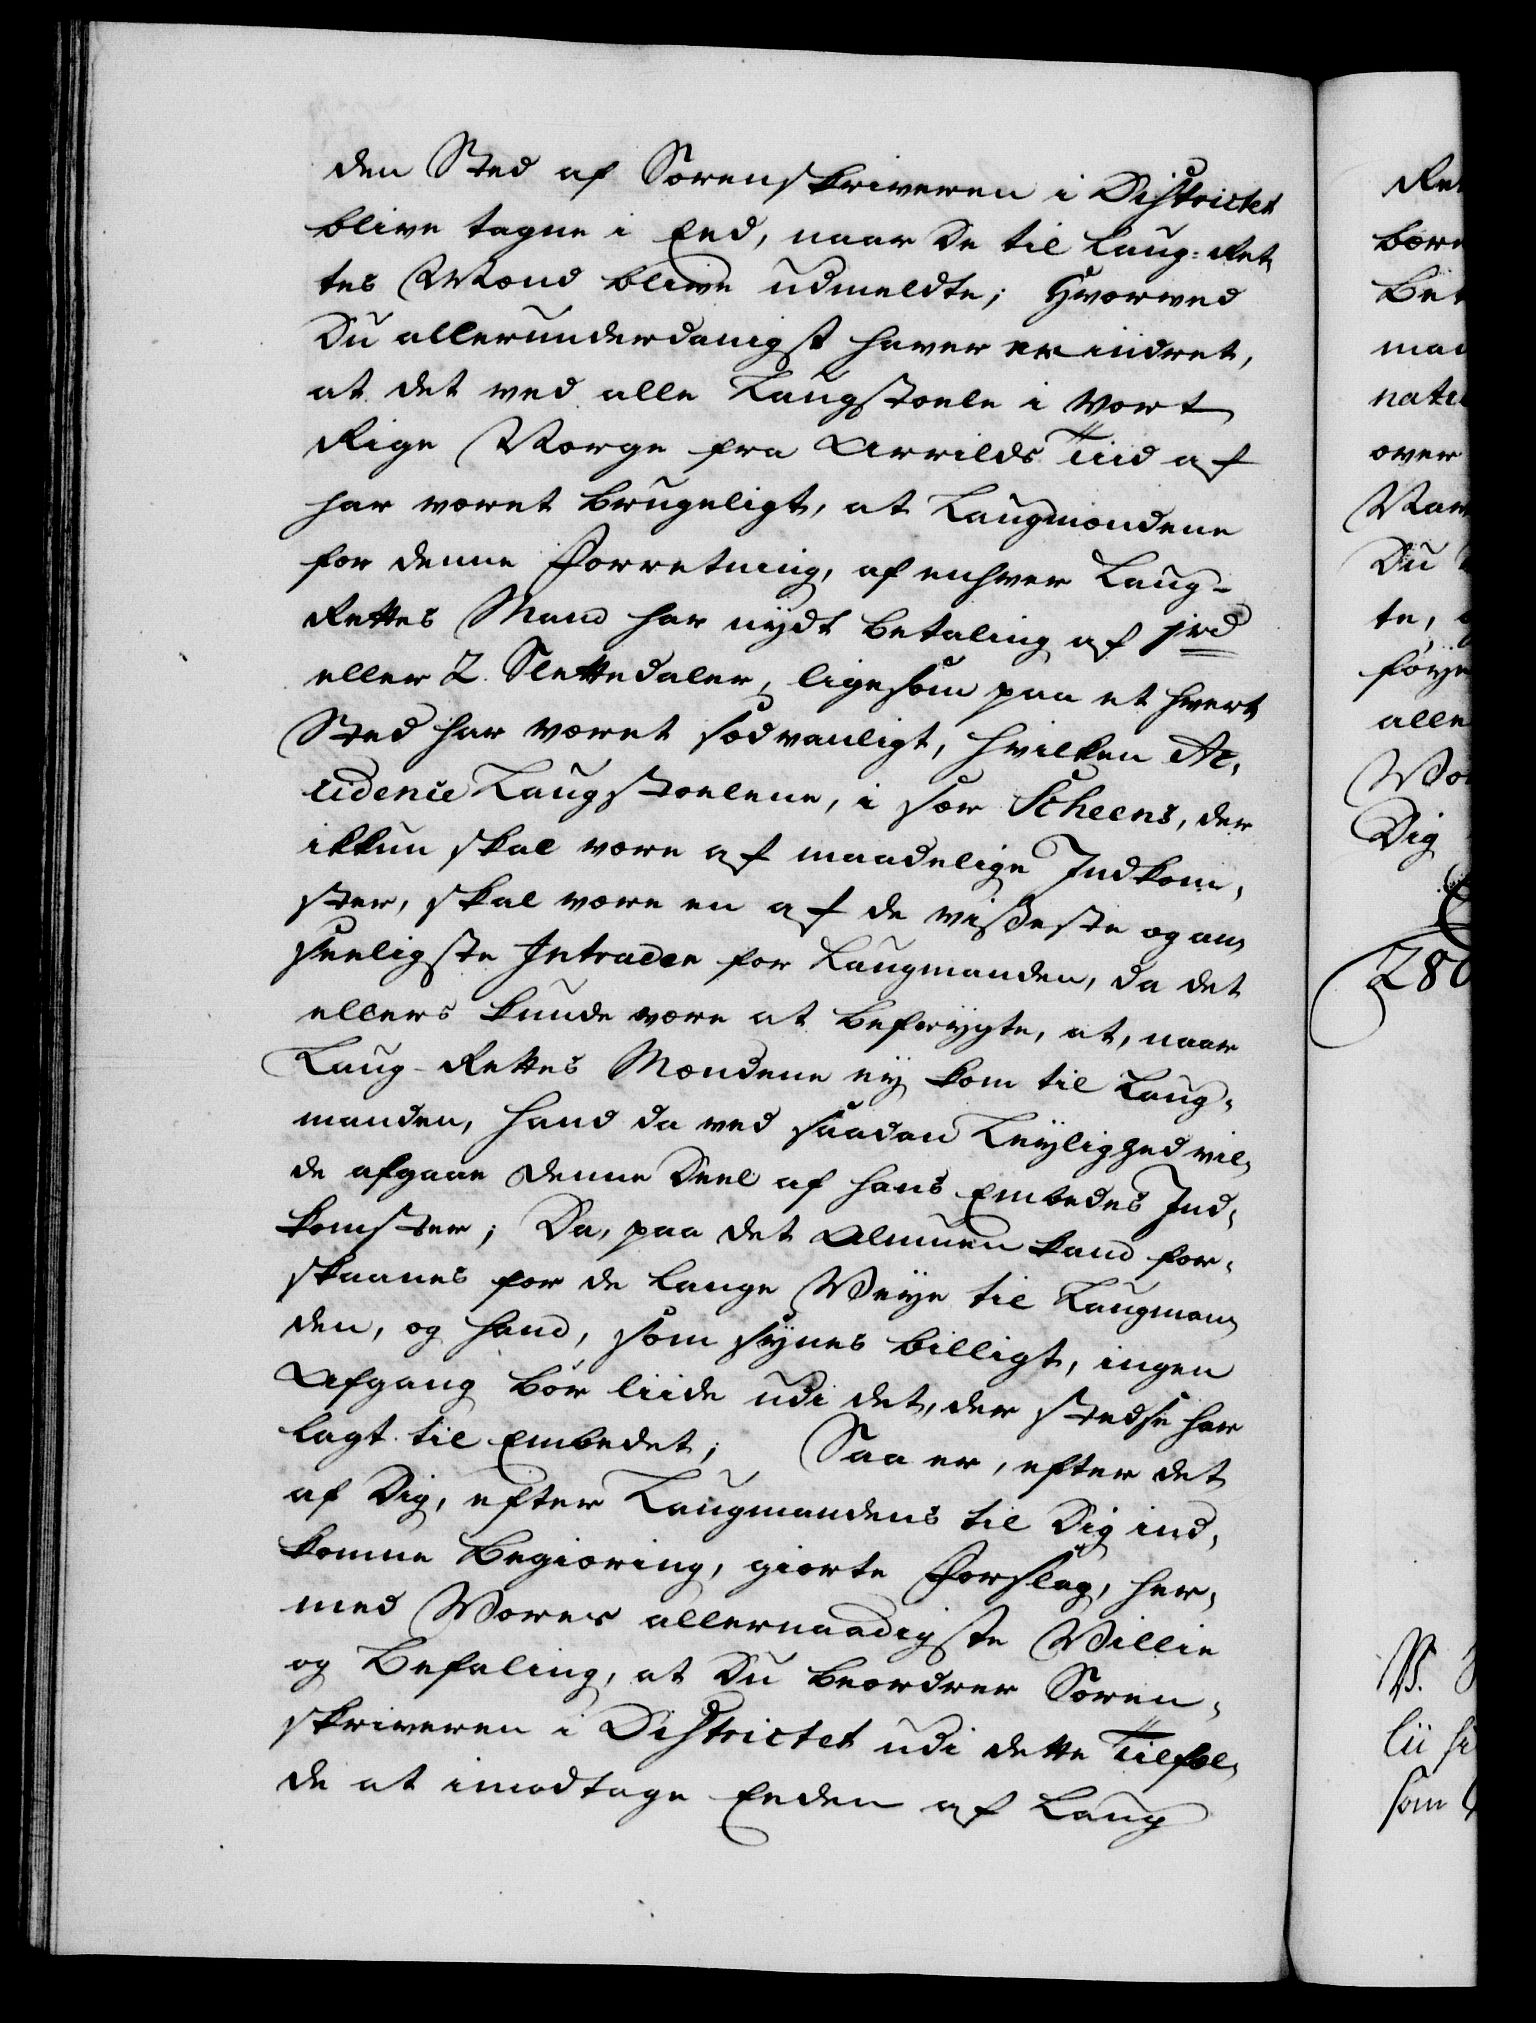 den Sted af Sorenskriveren i Districtet
blive tagne i Eed, naar De til Laug-Ret,
tes Mænd blive udmeldte; Hvorved
Du allerunderdanigst haver erindret,
at det ved alle Laugstoele i Vort
Rige Norge fra Arrilds Tiid af
har været brugeligt, at Laugmændene
for denne Forretning, af enhver Laug-
Rettes Mand har nydt betaling af 1rd
eller 2 Slettedaler, ligesom paa et hvert
Sted har været sædvanligt, hvilken Ac,
cidence Laugstoelene, i sær Scheens, der
ikkun skal være af maadelige Indkom,
ster, skal være en af de visseste og an,
seeligste Intrader for Laugmanden, da det
ellers kunde være at befrygte, at, naar
Laug-Rettes Mændene ey kom til Laug,
manden, Hand da ved saadan Leylighed vil,
de afgaae denne Deel af hans Embedes Ind,
komster; Da, paa det Almuen kand for,
skaanes for de lange Veye til Laugman,
den, og hand, som synes billigt, ingen
Afgang bør liide udi det, der stedse har
lagt til Embedet; Saa er, efter det
af Dig, efter Laugmandens til Dig ind,
komne Begiæring, giorte Forslag, her,
med Vores allernaadigste Villie
og Befaling, at Du beordrer Soren,
skriveren i Districtet udi dette Tilfæl,
de at imodtage Eeden af Laug